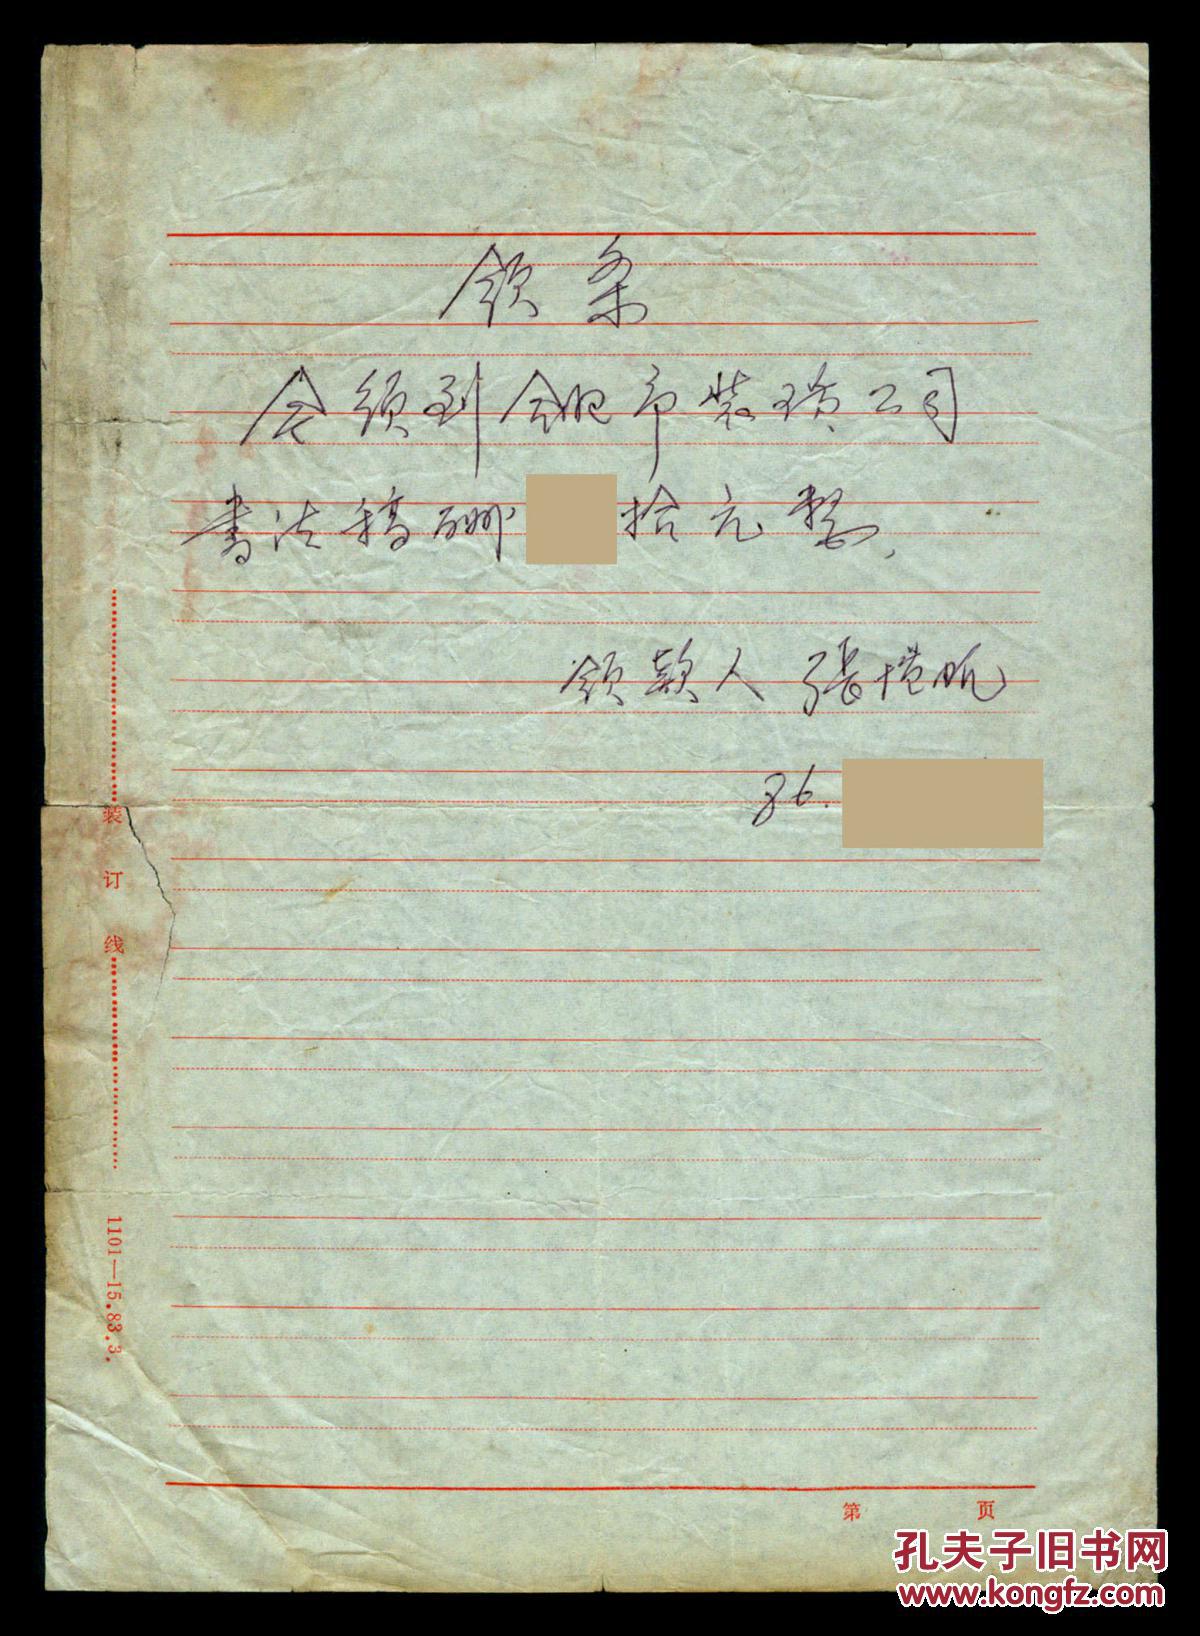 领条
今领到合肥市装璜公司
书法稿酬 拾元整.
领款人 張愷帆
86.
装订线
1101—15.83.3.
第 页
孔夫子旧书网
www.kongfz.com